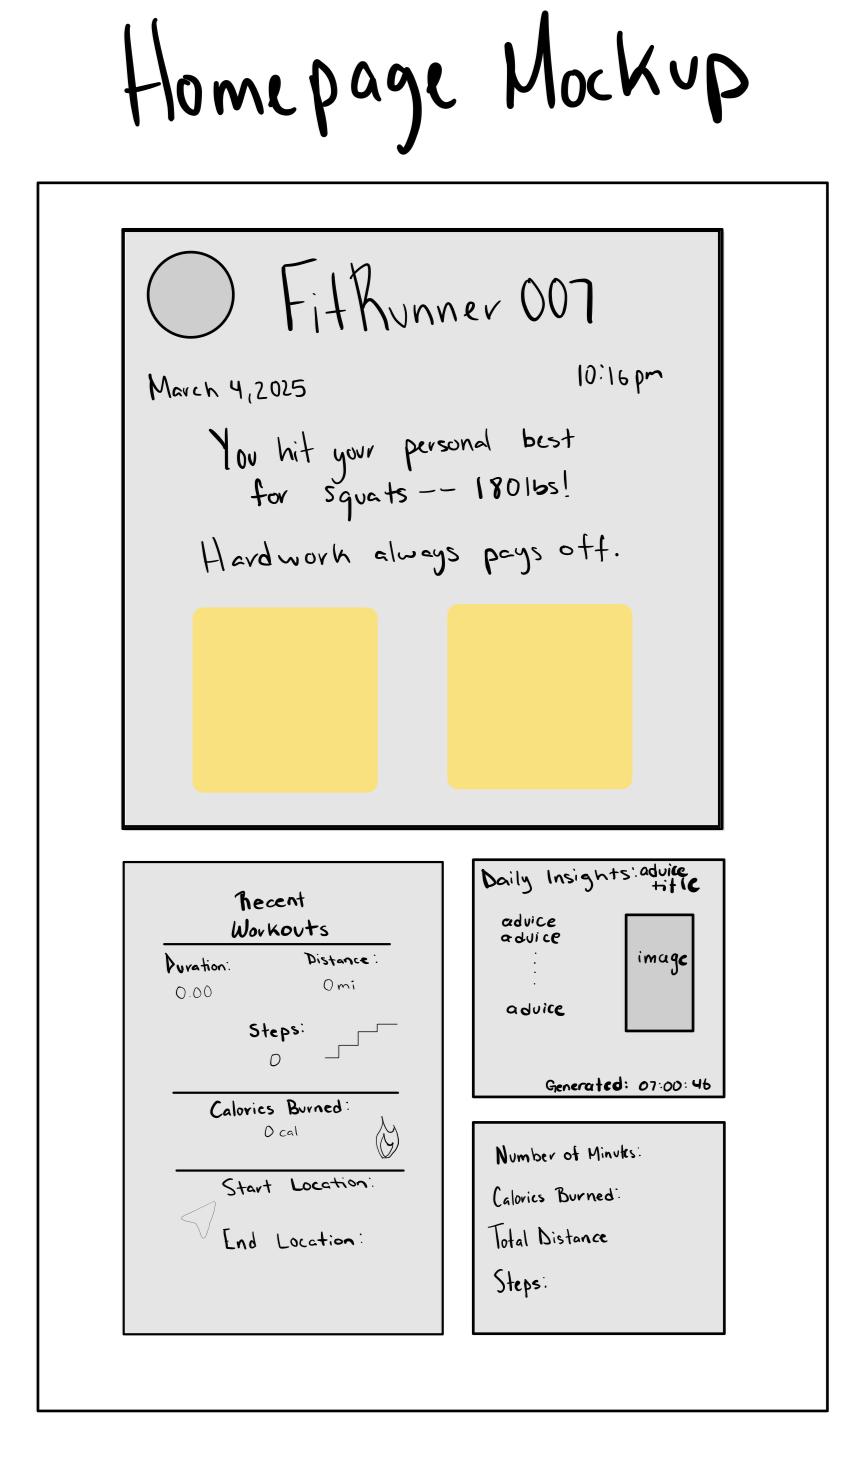 Homepage Mockup
FitRunner 007
March 4, 2025
10:16pm
You hit your personal best
for squats -- 180lbs!
Hardwork always pays off.
Recent
Workouts
Duration:
Distance:
0.00
0mi
Steps:
0
Calories Burned:
0 cal
Start Location:
End Location:
Daily Insights: advice
title
advice
advice
advice
image
Generated: 07:00:46
Number of Minutes:
Calories Burned:
Total Distance
Steps: